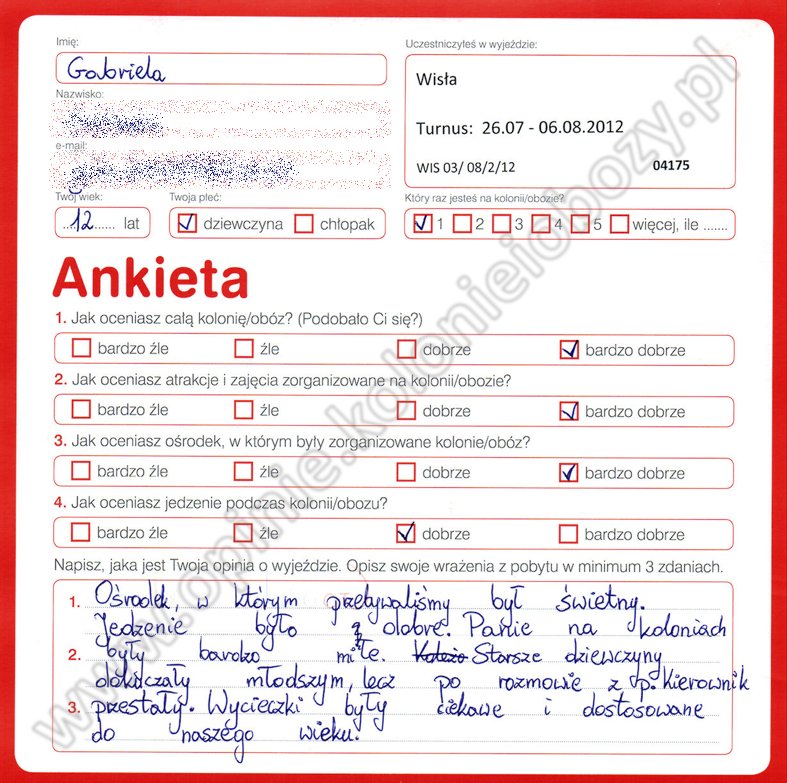 Imię:
Gabriela
Nazwisko:
e-mail:
Twój wiek:
12 lat
Twoja płeć:
dziewczyna chłopak
Uczestniczyłeś w wyjeździe:
Wisła
Turnus: 26.07 - 06.08.2012
WIS 03/ 08/2/12 04175
Który raz jesteś na kolonii/obozie?
1 2 3 4 5 więcej, ile .......
Ankieta
1. Jak oceniasz całą kolonię/obóz? (Podobało Ci się?)
bardzo źle źle dobrze bardzo dobrze
2. Jak oceniasz atrakcje i zajęcia zorganizowane na kolonii/obozie?
bardzo źle źle dobrze bardzo dobrze
3. Jak oceniasz ośrodek, w którym były zorganizowane kolonie/obóz?
bardzo źle źle dobrze bardzo dobrze
4. Jak oceniasz jedzenie podczas kolonii/obozu?
bardzo źle źle dobrze bardzo dobrze
Napisz, jaka jest Twoja opinia o wyjeździe. Opisz swoje wrażenia z pobytu w minimum 3 zdaniach.
1. Ośrodek, w którym przebywaliśmy był świetny.
Jedzenie było dobre. Panie na koloniach
2. były bardzo miłe. Starsze dziewczyny
dokuczały młodszym, lecz po rozmowie z p. Kierownik
3. przestały. Wycieczki były ciekawe i dostosowane
do naszego wieku.
www.opinie.kolonieiobozy.pl